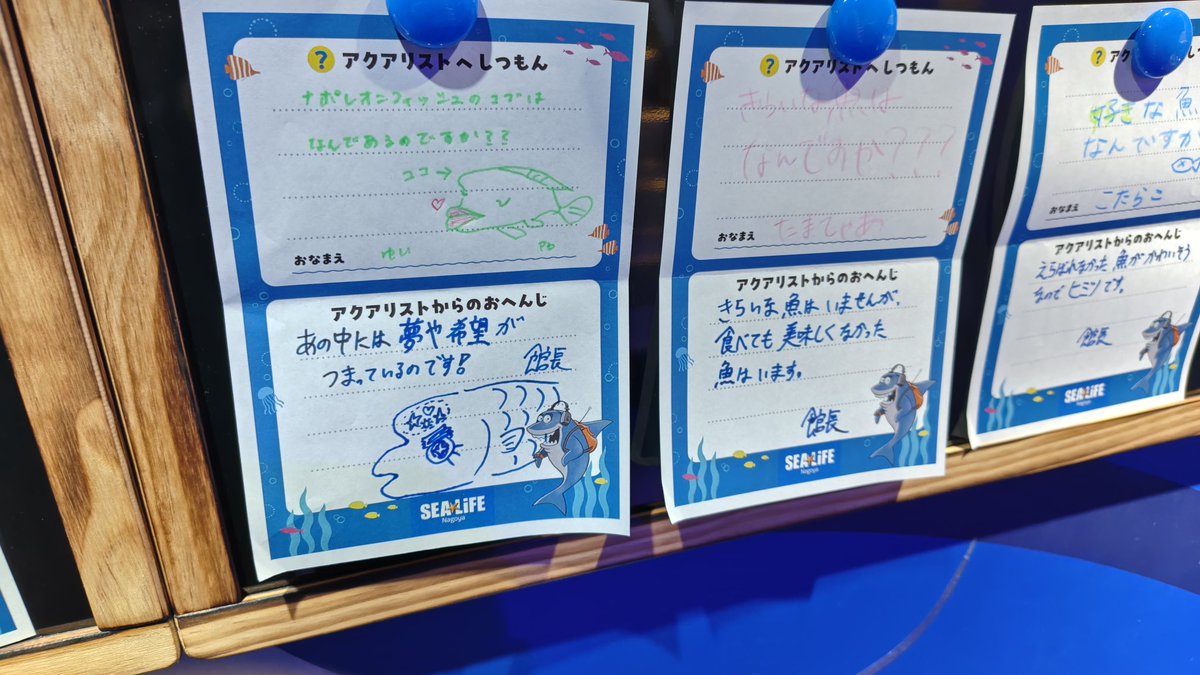 ? アクアリストへしつもん
ナポレオンフィッシュのコブは
なんであるのですか??
ココ→
おなまえ ゆい
アクアリストからのおへんじ
あの中には夢や希望が
つまっているのです!
館長
SEA LiFE
Nagoya
? アクアリストへしつもん
きらいな魚は
なんですか???
おなまえ たましゃわ
アクアリストからのおへんじ
きらいな魚はいませんが、
食べても美味しくなかった
魚はいます。
館長
SEA LiFE
Nagoya
? アクア
好きな魚
なんですか
おなまえ こたらこ
アクアリストからのおへんじ
えらばれなかった魚がかわいそう
なので ヒミツです。
館長
SEA LiFE
Nagoya